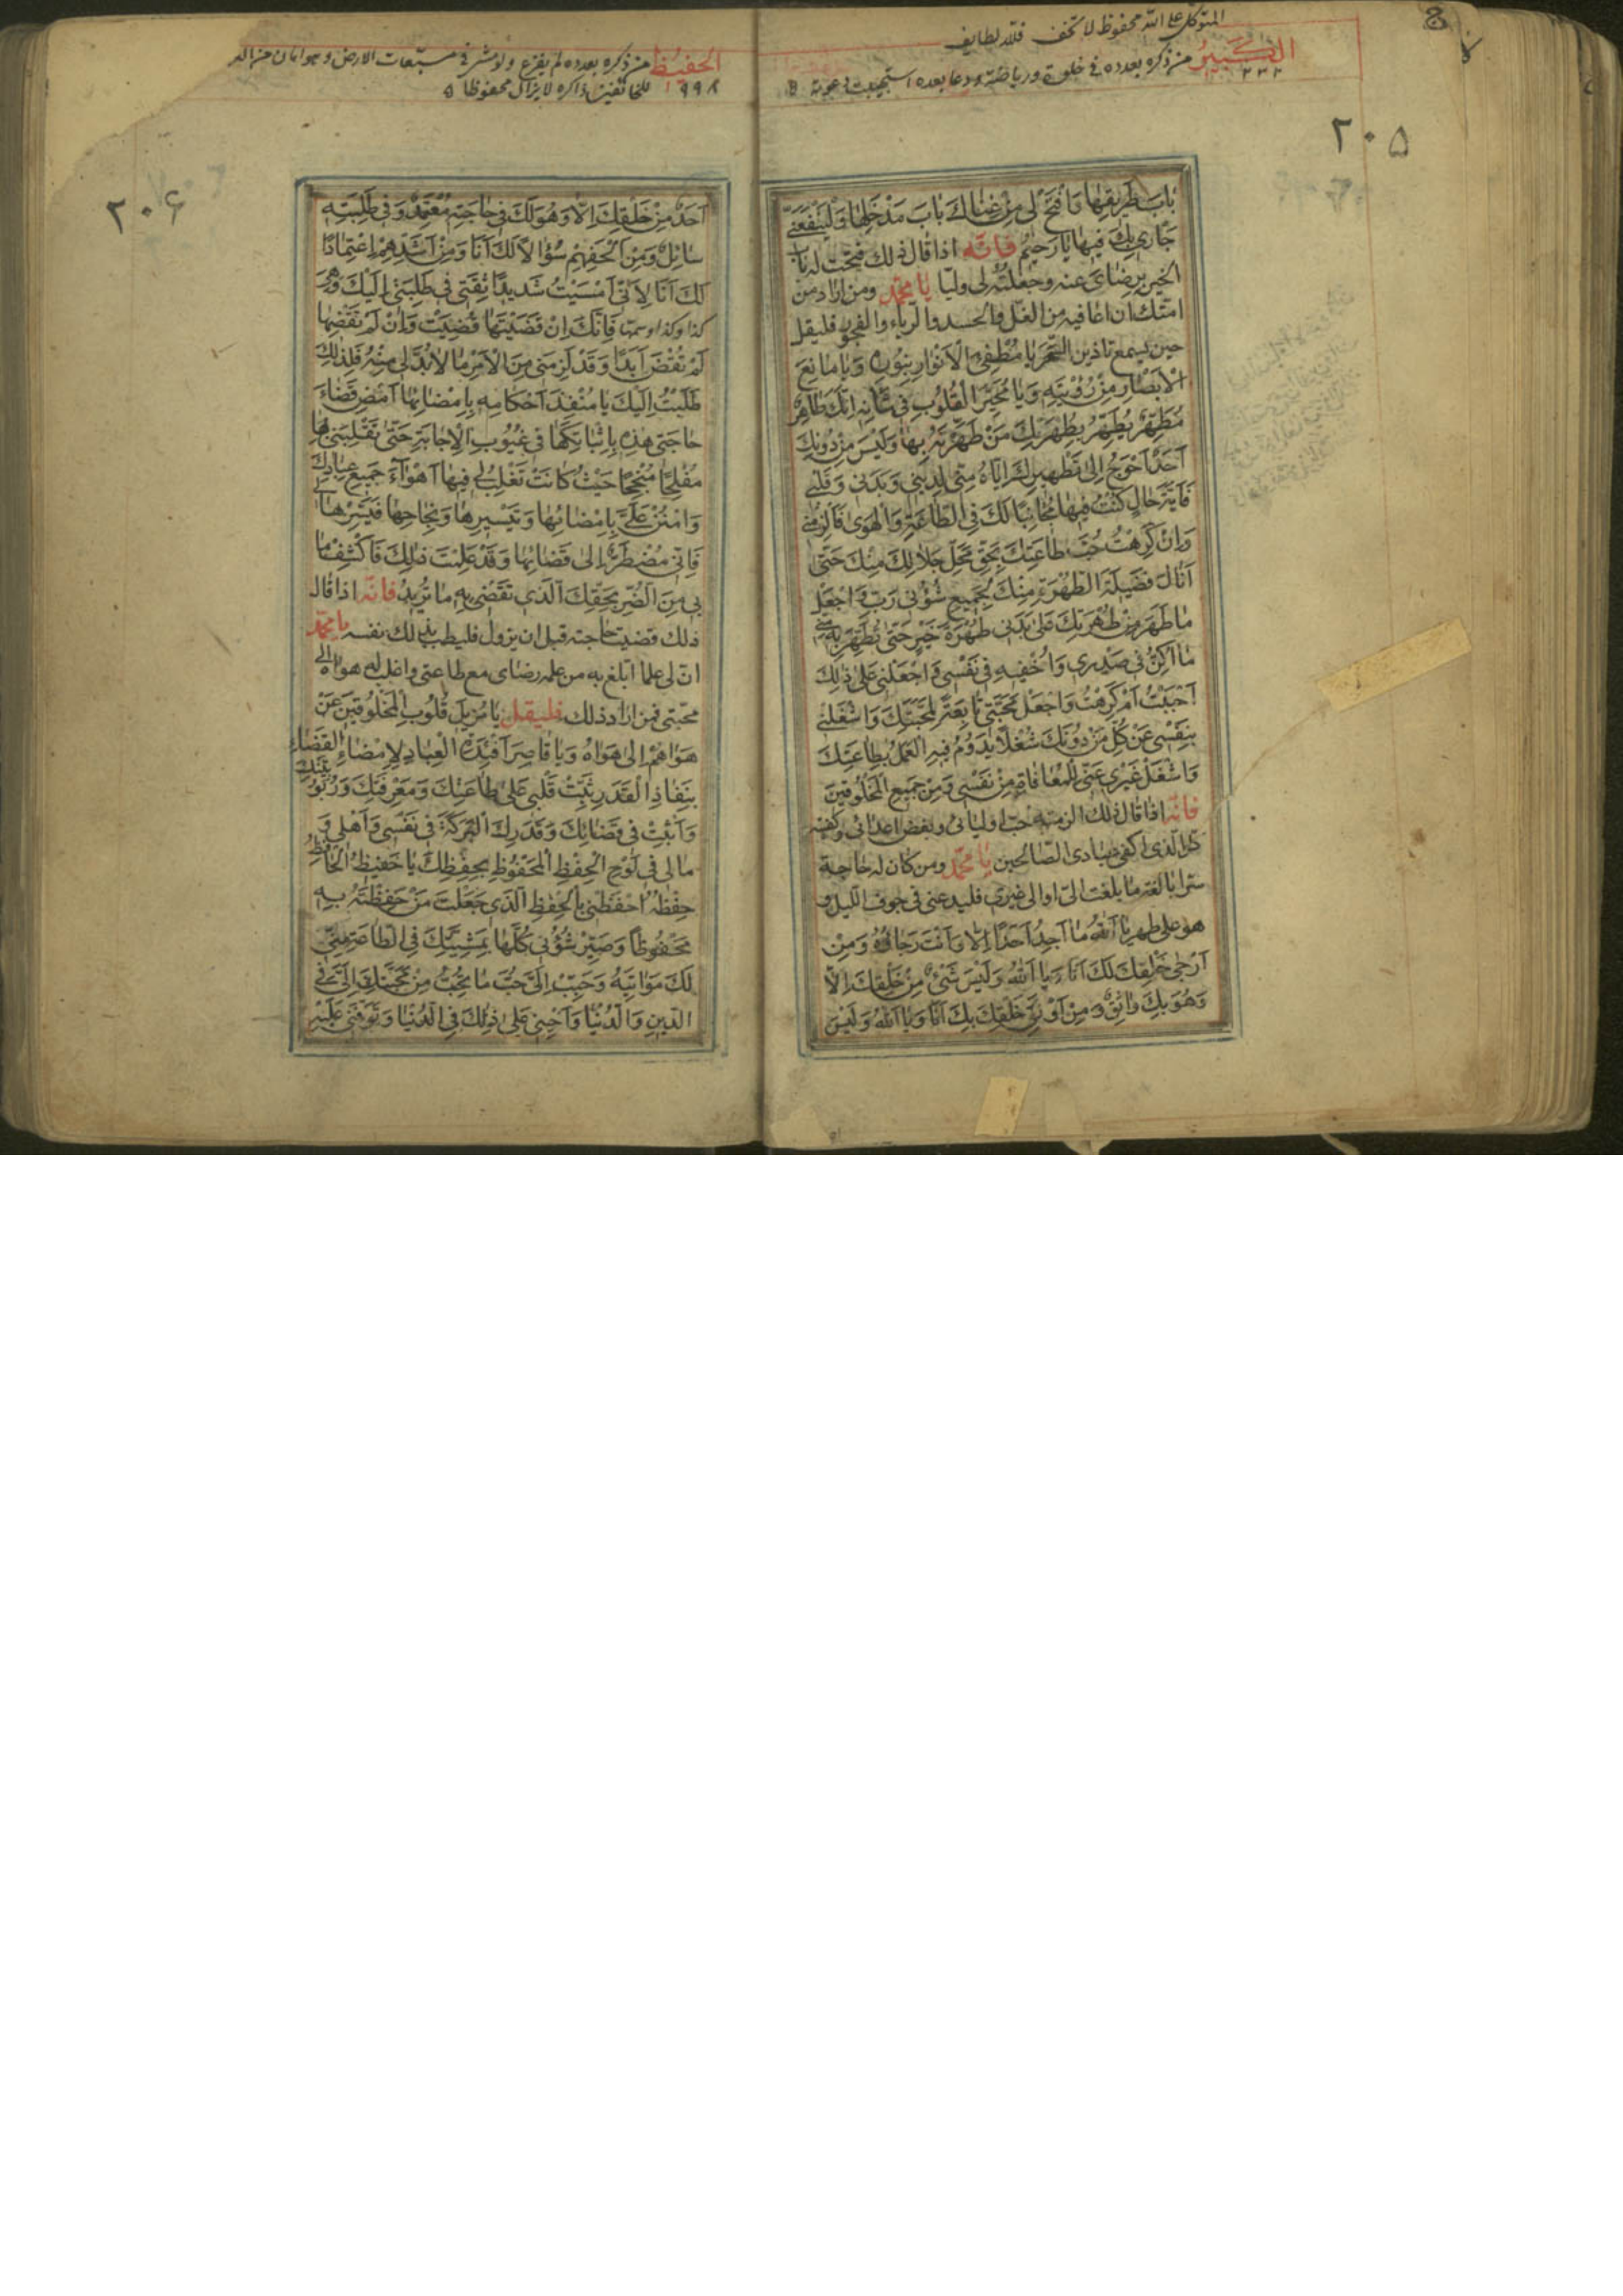 المتوكل على الله محفوظ لا تخف فلله لطايف
الكبير من ذكره بعدده في خلوة ورياضة ودعا بعده استجيبت دعوته
٢٣٢
٢٠٥
بَابَ طَرِيقِهَا وَافْتَحْ لِي مِنْ غِنَاكَ بَابَ مَدْخَلِهَا وَلْيَنْفَعْنِي
جَارِي بِكَ فِيهَا يَا رَحِيمُ فانّه اذا قال ذلك فتحت له باب
الخير برضاى عنه وجعلته لى وليّا يا محمّد ومن اراد من
امتك ان اعافيه من الغل والحسد والرياء والفجور فليقل
حين يسمع تاذين السّحر يَا مُطْفِئَ الْاَنْوَارِ بِنُورِهِ وَيَا مَانِعَ
الْاَبْصَارِ مِنْ رُؤْيَتِهِ وَيَا مُحَيِّرَ الْقُلُوبِ فِي شَأْنِهِ اِنَّكَ طَاهِرٌ
مُطَهِّرٌ يُطَهِّرُ بِطُهْرَتِكَ مَنْ طَهَّرْتَهُ بِهَا وَلَيْسَ مِنْ دُونِكَ
اَحَدٌ اَحْوَجَ اِلَى تَطْهِيرِكَ اِيَّاهُ مِنِّي لِدِينِي وَبَدَنِي وَقَلْبِي
فَاَيَّةَ حَالٍ كُنْتُ فِيهَا مُجَانِبًا لَكَ فِي الطَّاعَةِ وَالْهَوَى فَاَلْزِمْنِي
وَاِنْ كَرِهْتُ حُبَّ طَاعَتِكَ بِحَقِّ مَحَلِّ جَلَالِكَ مِنْكَ حَتَّى
اَنَالَ فَضِيلَةَ الطُّهْرَةِ مِنْكَ لِجَمِيعِ شُؤُنِي رَبِّ وَاجْعَلْ
مَا طَهَرَ مِنْ طُهْرَتِكَ عَلَى بَدَنِي طُهْرَةَ خَيْرٍ حَتَّى تُطَهِّرَ بِهِ مِنِّي
مَا اُكِنُّ فِي صَدْرِي وَاُخْفِيهِ فِي نَفْسِي وَاجْعَلْنِي عَلَى ذَلِكَ
اَحْبَبْتُ اَمْ كَرِهْتُ وَاجْعَلْ مَحَبَّتِي تَابِعَةً لِمَحَبَّتِكَ وَاشْغَلْنِي
بِنَفْسِي عَنْ كُلِّ مَنْ دُونَكَ شُغْلًا يَدُومُ فِيهِ الْعَمَلُ بِطَاعَتِكَ
وَاشْغَلْ غَيْرِي عَنِّي لِلْمُعَافَاةِ مِنْ نَفْسِي وَمِنْ جَمِيعِ الْمَخْلُوقِينَ
فانّه اذا قال ذلك الزمته حبّ اوليائى وبغض اعدائى وكفيته
كل الّذى اكفى عبادى الصّالحين يا محمّد ومن كان له حاجة
سرّا بالغة ما بلغت الىّ او الى غيرى فليدعنى فى جوف اللّيل و
هو على طهر يَا اَللّهُ مَا اَجِدُ اَحَدًا اِلَّا وَاَنْتَ رَجَاؤُهُ وَمِنْ
اَرْجَى خَلْقِكَ لَكَ اَنَا وَيَا اَللهُ وَلَيْسَ شَيْءٌ مِنْ خَلْقِكَ اِلَّا
وَهُوَ بِكَ وَاثِقٌ وَمِنْ اَوْثَقِ خَلْقِكَ بِكَ اَنَا وَيَا اَللهُ وَلَيْسَ
الحفيظ من ذكره بعدده لم يفزع ولو مشى في مسبّعات الارض وهو امان من
٩٩٨ للخائفين ذاكره لا يزال محفوظا
٢٠۶
اَحَدٌ مِنْ خَلْقِكَ اِلَّا وَهُوَ لَكَ فِي حَاجَتِهِ مُعْتَمِدٌ وَفِي طَلِبَتِهِ
سَائِلٌ وَمِنْ اَلْحَفِهِمْ سُؤَالًا لَكَ اَنَا وَمِنْ اَشَدِّهِمْ اِعْتِمَادًا
لَكَ اَنَا لِاَنِّي اَمْسَيْتُ شَدِيدًا ثِقَتِي فِي طَلِبَتِي اِلَيْكَ وَهِيَ
كذا وكذا وسمّها فَاِنَّكَ اِنْ قَضَيْتَهَا قُضِيَتْ وَاِنْ لَمْ تَقْضِهَا
لَمْ تُقْضَ اَبَدًا وَقَدْ لَزِمَنِي مِنَ الْاَمْرِ مَا لَا بُدَّ لِي مِنْهُ فَلِذَلِكَ
طَلَبْتُ اِلَيْكَ يَا مُنْفِذَ اَحْكَامِهِ بِاِمْضَائِهَا اَمْضِ قَضَاءَ
حَاجَتِي هَذِهِ بِاِثْبَاتِكَهَا فِي غُيُوبِ الْاِجَابَةِ حَتَّى تَقْلِبَنِي بِهَا
مُفْلِحًا مُنْجِحًا حَيْثُ كَانَتْ تَغْلِبُ لِي فِيهَا اَهْوَآءَ جَمِيعِ عِبَادِكَ
وَامْنُنْ عَلَيَّ بِاِمْضَائِهَا وَتَيْسِيرِهَا وَنَجَاحِهَا فَيَسِّرْهَا لِي
فَاِنِّي مُضْطَرٌّ اِلَى قَضَائِهَا وَقَدْ عَلِمْتَ ذَلِكَ فَاكْشِفْ مَا
بِي مِنَ الضُّرِّ بِحَقِّكَ الَّذِي تَقْضِي بِهِ مَا تُرِيدُ فانّه اذا قال
ذلك قضيت حاجته قبل ان يزول فليطب بذلك نفسه يا محمّد
انّ لى علما ابلغ به من علمه رضاى مع طاعتى واغلب له هواه الى
محبّتى فمن اراد ذلك فليقل يَا مُزِيلَ قُلُوبِ الْمَخْلُوقِينَ عَنْ
هَوَاهُمْ اِلَى هَوَاهُ وَيَا قَاصِرَ اَفْئِدَةِ الْعِبَادِ لِاِمْضَاءِ الْقَضَاءِ
بِنَفَاذِ الْقَدَرِ ثَبِّتْ قَلْبِي عَلَى طَاعَتِكَ وَمَعْرِفَتِكَ وَرُبُوبِيَّتِكَ
وَاَثْبِتْ فِي قَضَائِكَ وَقَدَرِكَ الْبَرَكَةَ فِي نَفْسِي وَاَهْلِي وَ
مَالِي فِي لَوْحِ الْحِفْظِ الْمَحْفُوظِ بِحِفْظِكَ يَا حَفِيظُ الْحَافِظُ
حِفْظَهُ احْفَظْنِي بِالْحِفْظِ الَّذِي جَعَلْتَ مَنْ حَفِظْتَهُ بِهِ
مَحْفُوظًا وَصَيِّرْ شُؤُنِي كُلَّهَا بِمَشِيَّتِكَ فِي الطَّاعَةِ مِنِّي
لَكَ مَوَاتِيَةً وَحَبِّبْ اِلَيَّ حُبَّ مَا تُحِبُّ مِنْ مَحَبَّتِكَ اِلَيَّ فِي
الدِّينِ وَالدُّنْيَا وَاَحْيِنِي عَلَى ذَلِكَ فِي الدُّنْيَا وَتَوَفَّنِي عَلَيْهِ